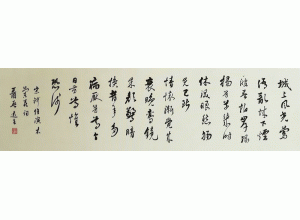 城上風光鶯
語亂城下煙
波春拍岸綠
楊芳草幾時
休淚眼愁腸
先已斷
情懷漸覺成
衰晚鸞鏡
朱顏驚暗
換昔年多
病厭芳尊今
日芳尊惟
恐淺
宋錢惟演木
蘭花詞